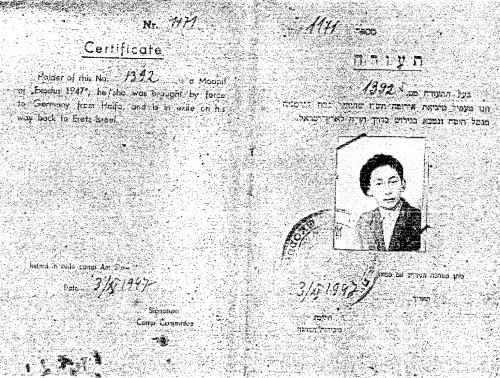 Nr. 1171
Certificate
Holder of this No. 1392 is a Maapil
of "Exodus 1947", he/she was brought by force
to Germany from Haifa, and is in exile on his
way back to Eretz-Israel.
Issued in exile camp Am
Date 3/XI 1947
Signature
Camp Committee
מספר 1171
תעודה
בעל התעודה מס. 1392
הנו מעפיל יציאת אירופה תש״ז שהוחזר בכח לגרמניה
מנמל חיפה ונמצא בגירוש בדרך חזרה לארץ-ישראל.
3/XI 1947
תאריך
חתימת